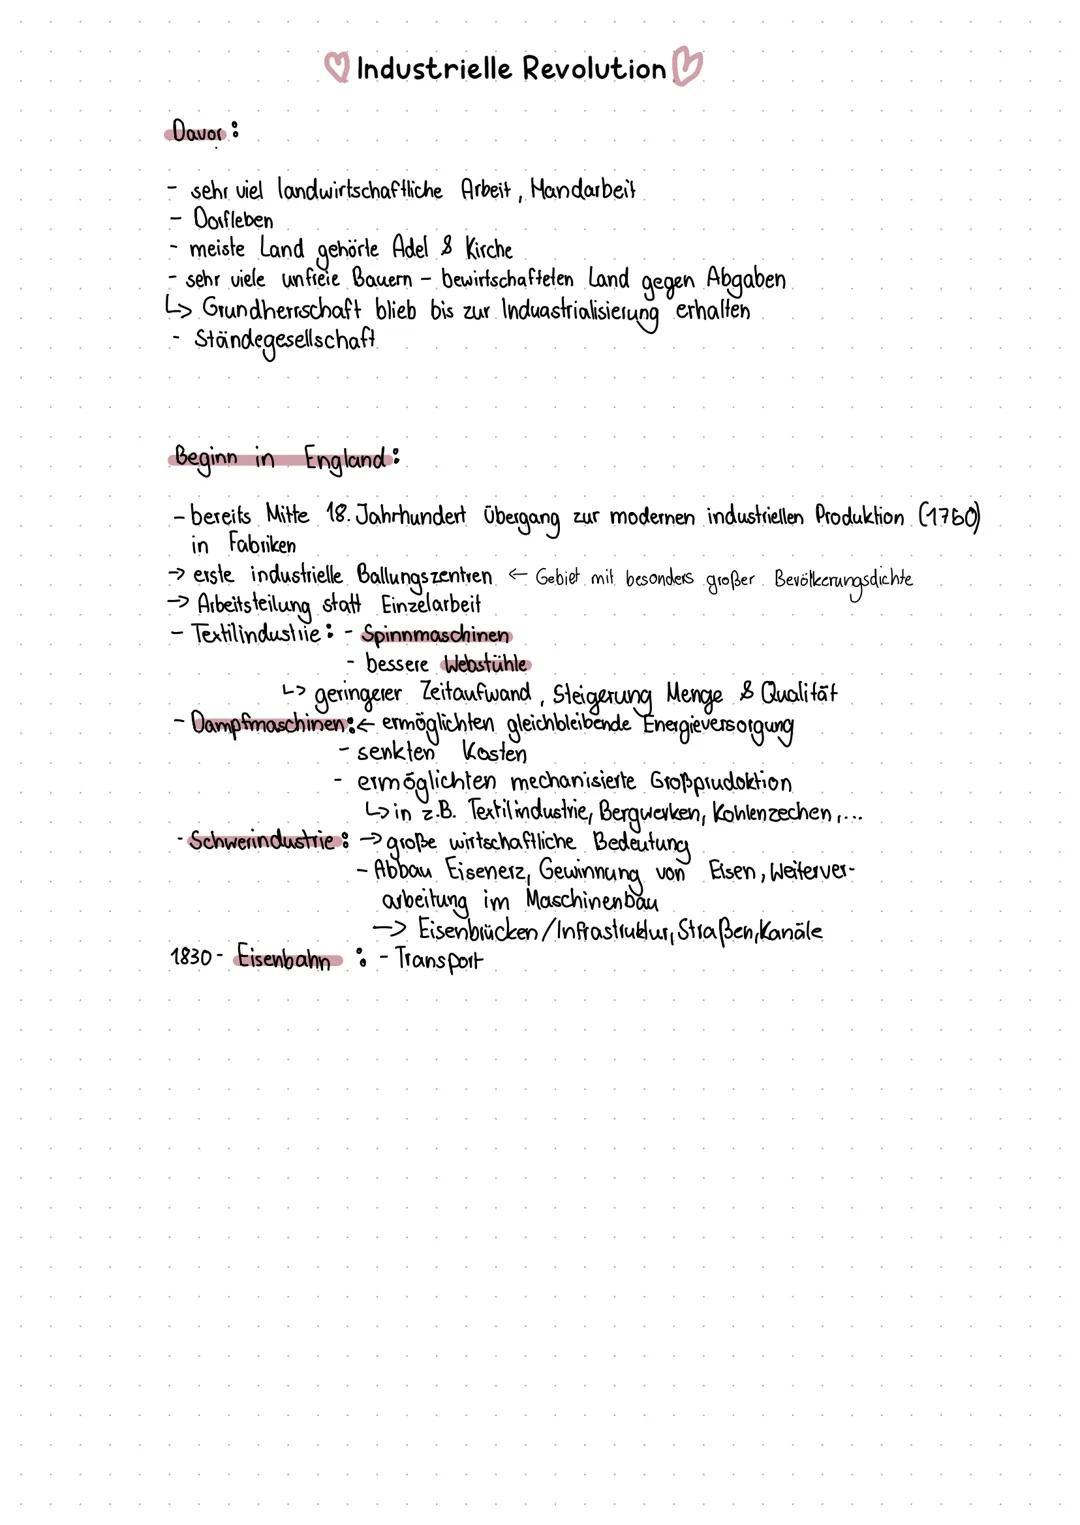 Industrielle Revolution
Davor:
- sehr viel landwirtschaftliche Arbeit, Handarbeit
- Dorfleben
- meiste Land gehörte Adel & Kirche
- sehr viele unfreie Bauern - bewirtschafteten Land gegen Abgaben
↳ Grundherrschaft blieb bis zur Induastrialisierung erhalten
- Ständegesellschaft
Beginn in England:
- bereits Mitte 18. Jahrhundert Übergang zur modernen industriellen Produktion (1760)
in Fabriken
→ erste industrielle Ballungszentren ← Gebiet mit besonders großer Bevölkerungsdichte
→ Arbeitsteilung statt Einzelarbeit
- Textilindustrie: - Spinnmaschinen
- bessere Webstühle
↳ geringerer Zeitaufwand, Steigerung Menge & Qualität
- Dampfmaschinen: ← ermöglichten gleichbleibende Energieversorgung
- senkten Kosten
- ermöglichten mechanisierte Großprudoktion
↳ in z.B. Textilindustrie, Bergwerken, Kohlenzechen,...
- Schwerindustrie: → große wirtschaftliche Bedeutung
- Abbau Eisenerz, Gewinnung von Eisen, Weiterver-
arbeitung im Maschinenbau
→ Eisenbrücken/Infrastruktur, Straßen, Kanäle
1830 - Eisenbahn : - Transport